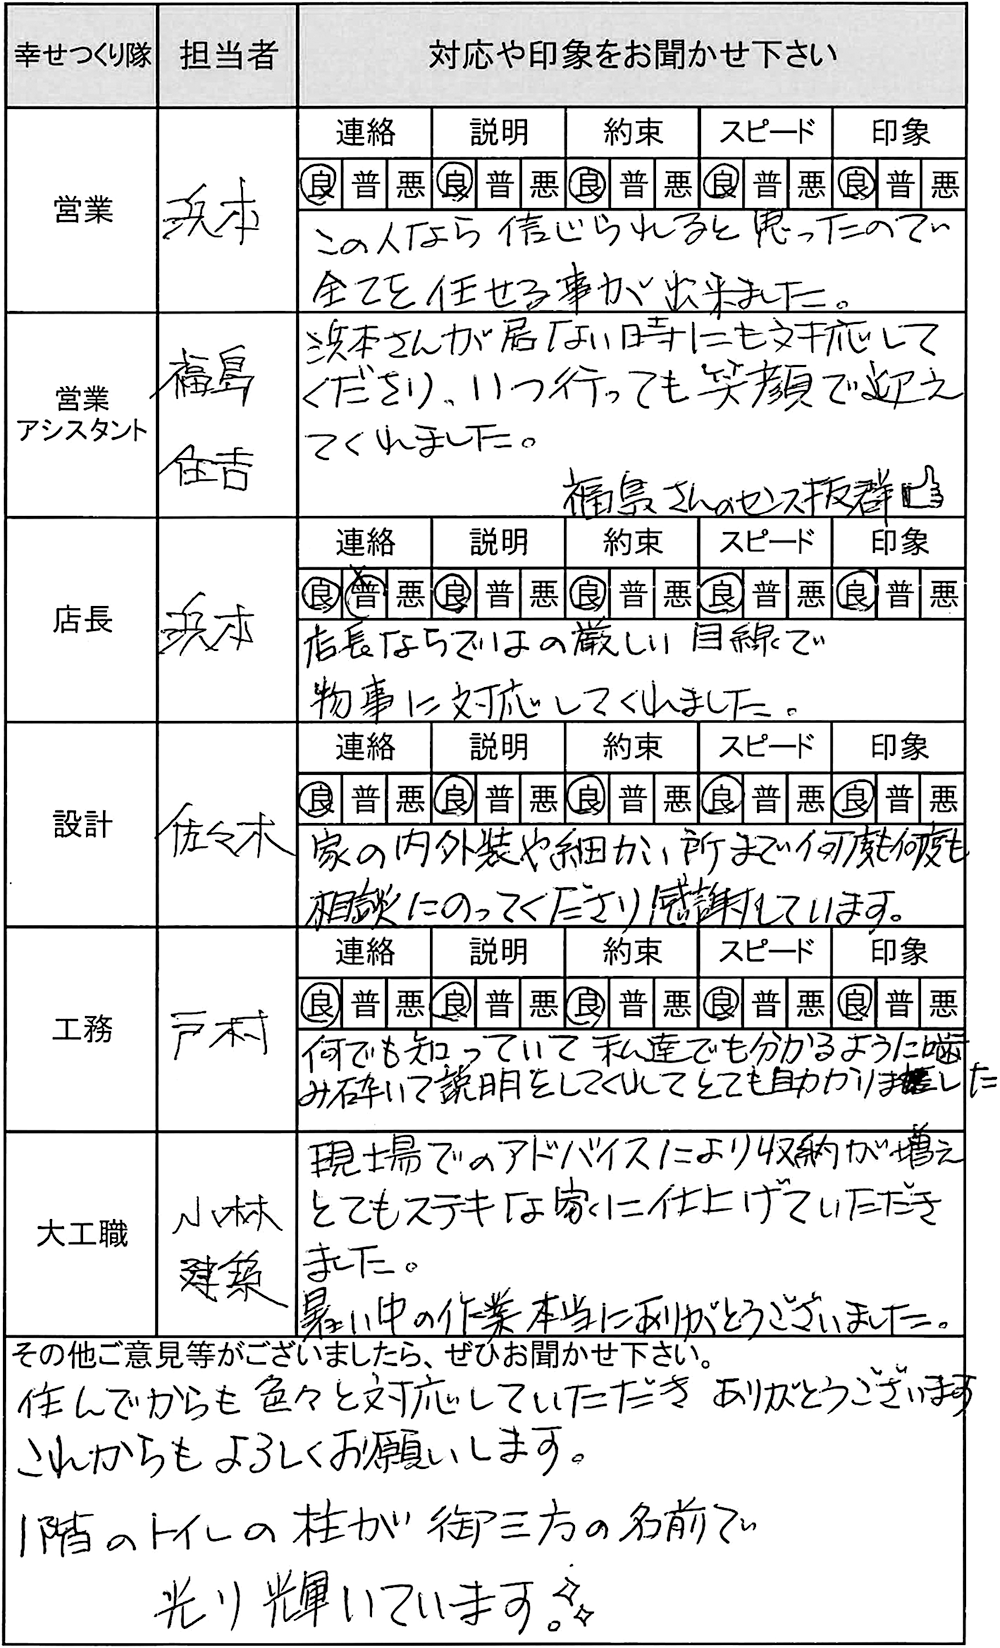 幸せつくり隊 担当者 対応や印象をお聞かせ下さい
連絡 説明 約束 スピード 印象
良 普 悪 良 普 悪 良 普 悪 良 普 悪 良 普 悪
営業 浜本
この人なら信じられると思ったので
全てを任せる事が出来ました。
営業
アシスタント
福島
住吉
浜本さんが居ない時にも対応して
くださり、いつ行っても笑顔で迎え
てくれました。
福島さんのセンス抜群
連絡 説明 約束 スピード 印象
良 普 悪 良 普 悪 良 普 悪 良 普 悪 良 普 悪
店長 浜本
店長ならではの厳しい目線で
物事に対応してくれました。
連絡 説明 約束 スピード 印象
良 普 悪 良 普 悪 良 普 悪 良 普 悪 良 普 悪
設計 佐々木
家の内外装や細かい所まで何度も何度も
相談にのってくださり感謝しています。
連絡 説明 約束 スピード 印象
良 普 悪 良 普 悪 良 普 悪 良 普 悪 良 普 悪
工務 戸村
何でも知っていて私達でも分かるように噛
み砕いて説明をしてくれてとても助かりました
大工職
小林
建築
現場でのアドバイスにより収納が増え
とてもステキな家に仕上げていただき
ました。
暑い中の作業本当にありがとうございました。
その他ご意見等がございましたら、ぜひお聞かせ下さい。
住んでからも色々と対応していただきありがとうございます
これからもよろしくお願いします。
1階のトイレの柱が御三方の名前で
光り輝いています。